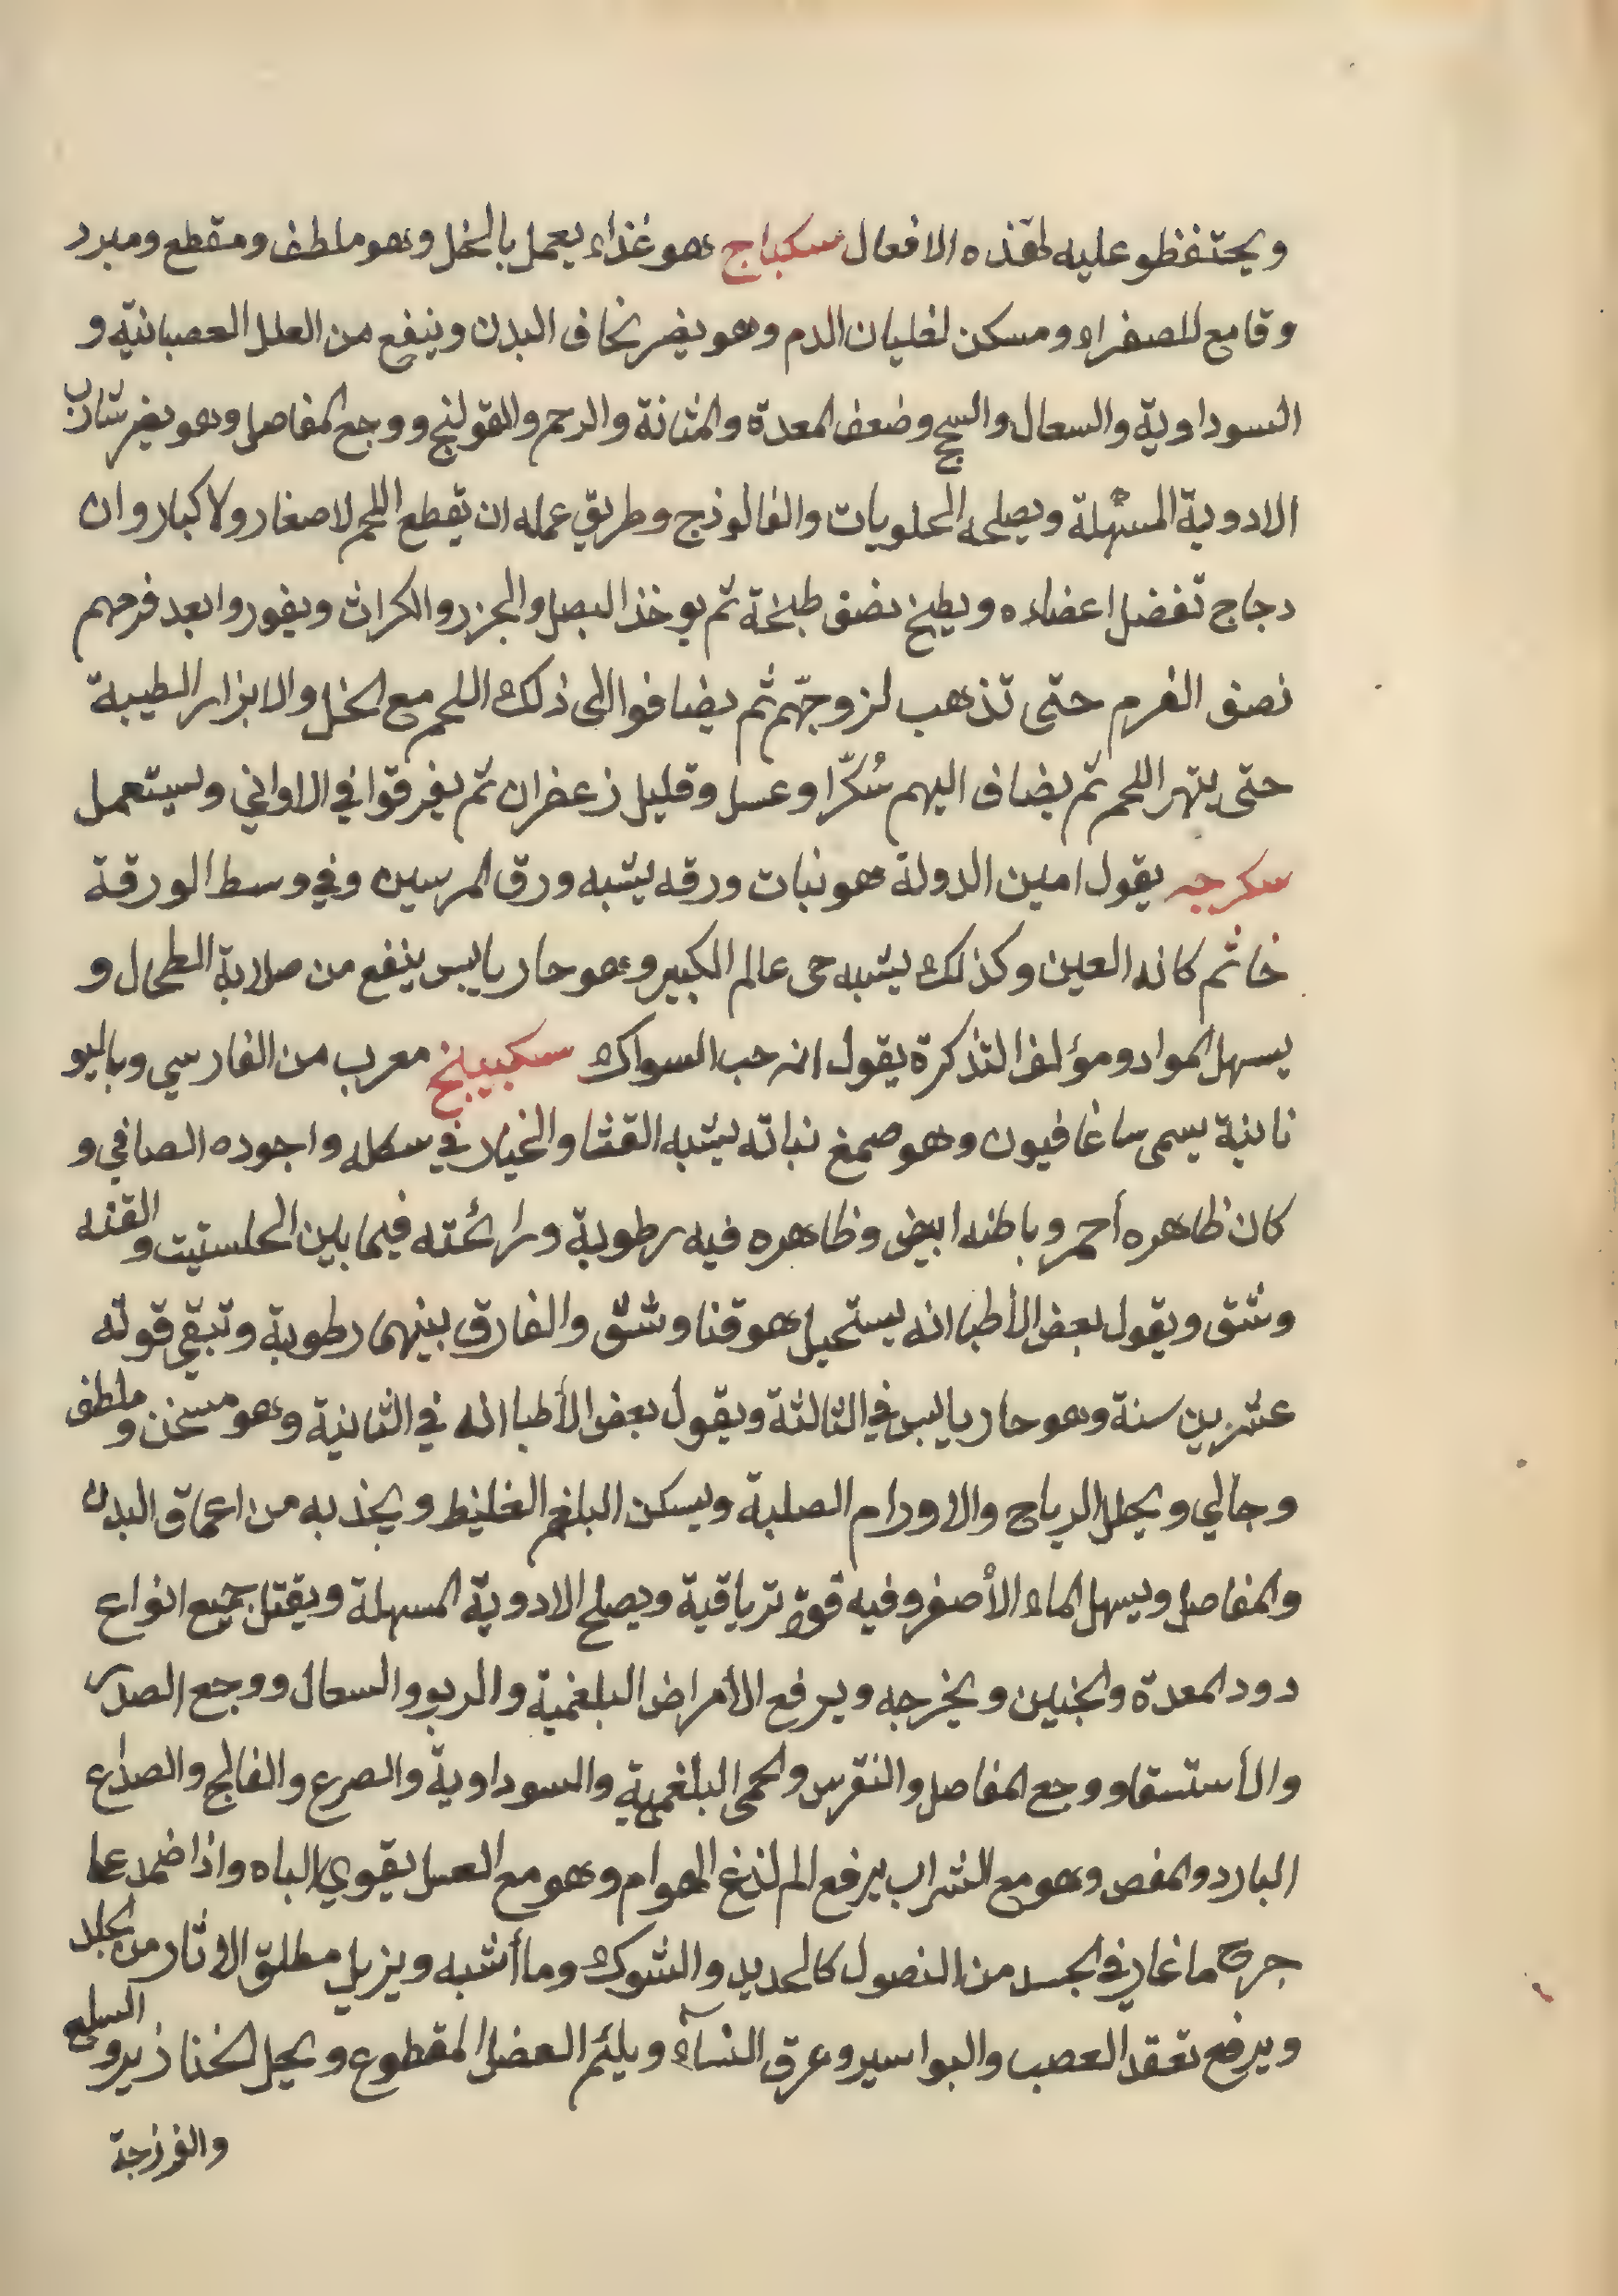 ويحتفظو عليه لهذه الافعال سكباج هو غذاء يعمل بالخل وهو ملطف ومقطع ومبرد
وقامع للصفراء ومسكن لغليان الدم وهو يضر نحاف البدن وينفع من العلل العصبانية و
السوداوية والسعال والسحج وضعف المعدة والمثانة والرحم والقولنج ووجع المفاصل وهو يضر شارب
الادوية المسهلة ويصلحه الحلويات والفالوذج وطريق عمله ان يقطع اللحم لا صغار ولا كبار وان
دجاج تفضل اعضاءه ويطبخ نصف طبخة ثم يوخذ البصل والجزر والكراث ويفوروا بعد فرمهم
نصف الفرم حتى تذهب لزوجتهم ثم يضافوا الى ذلك اللحم مع الخل والابزار الطيبة
حتى يتهر اللحم ثم يضاف اليهم سُكّر او عسل وقليل زعفران ثم يفرقوا في الاواني ويستعمل
سكرجه يقول امين الدولة هو نبات ورقه يشبه ورق المرسين وفي وسط الورقة
خاتم كانه العين وكذلك يشبه حى عالم الكبير وهو حار يابس ينفع من صلابة الطحال و
يسهل المواد ومؤلف التذكرة يقول انه حب السواك سكبينج معرب من الفارسي وباليو
نانية يسمى ساغافيون وهو صمغ نباته يشبه القثا والخيار في سكله واجوده الصافي و
كان ظاهره أحمر وباطنه ابيض وظاهره فيه رطوبة ورائحته فيما بين الحلستيت والقنه
وشق ويقول بعض الأطبا انه يستحيل هو قنا وشق والفارق بينهما رطوبة وتبقى قوته
عشرين سنة وهو حار يابس في الثالثة ويقول بعض الأطبا انه في الثانية وهو مسخن وملطف
وجالي ويحلل الرياح والاورام الصلبة ويسكن البلغم الغليظ ويجذبه من اعماق البدن
والمفاصل ويسهل الماء الأصفر وفيه قوة ترياقية ويصلح الادوية المسهلة ويقتل جميع انواع
دود المعدة والجنين ويخرجه ويرفع الأمراض البلغمية والربو والسعال ووجع الصدر
والأستسقاء ووجع المفاصل والنقرس والحمى البلغمية والسوداوية والصرع والفالج والصداع
البارد والمغص وهو مع الشراب يرفع الم لذغ الهوام وهو مع العسل يقوي الباه واذا ضمد عا
جرح ما غار في الجسد من النصول كالحديد والشوك وما أشبه ويزيل مطلق الاثار من الجلد
ويرفع تعقد العصب والبواسير وعرق النسآء ويلئم العضل المقطوع ويحيل الخنازير والسلع
والفرزجة